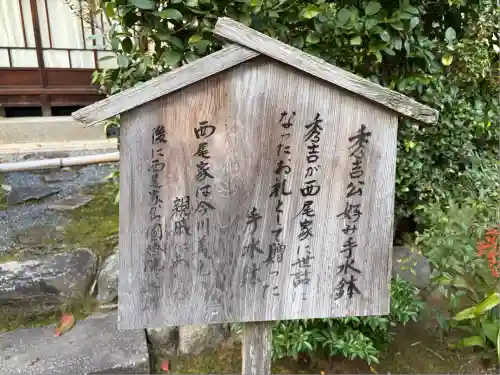 秀吉公好手水鉢
秀吉が西尾家に世話に
なったお礼として贈った
手水鉢
西尾家は今川義元
親戚
後に西尾家